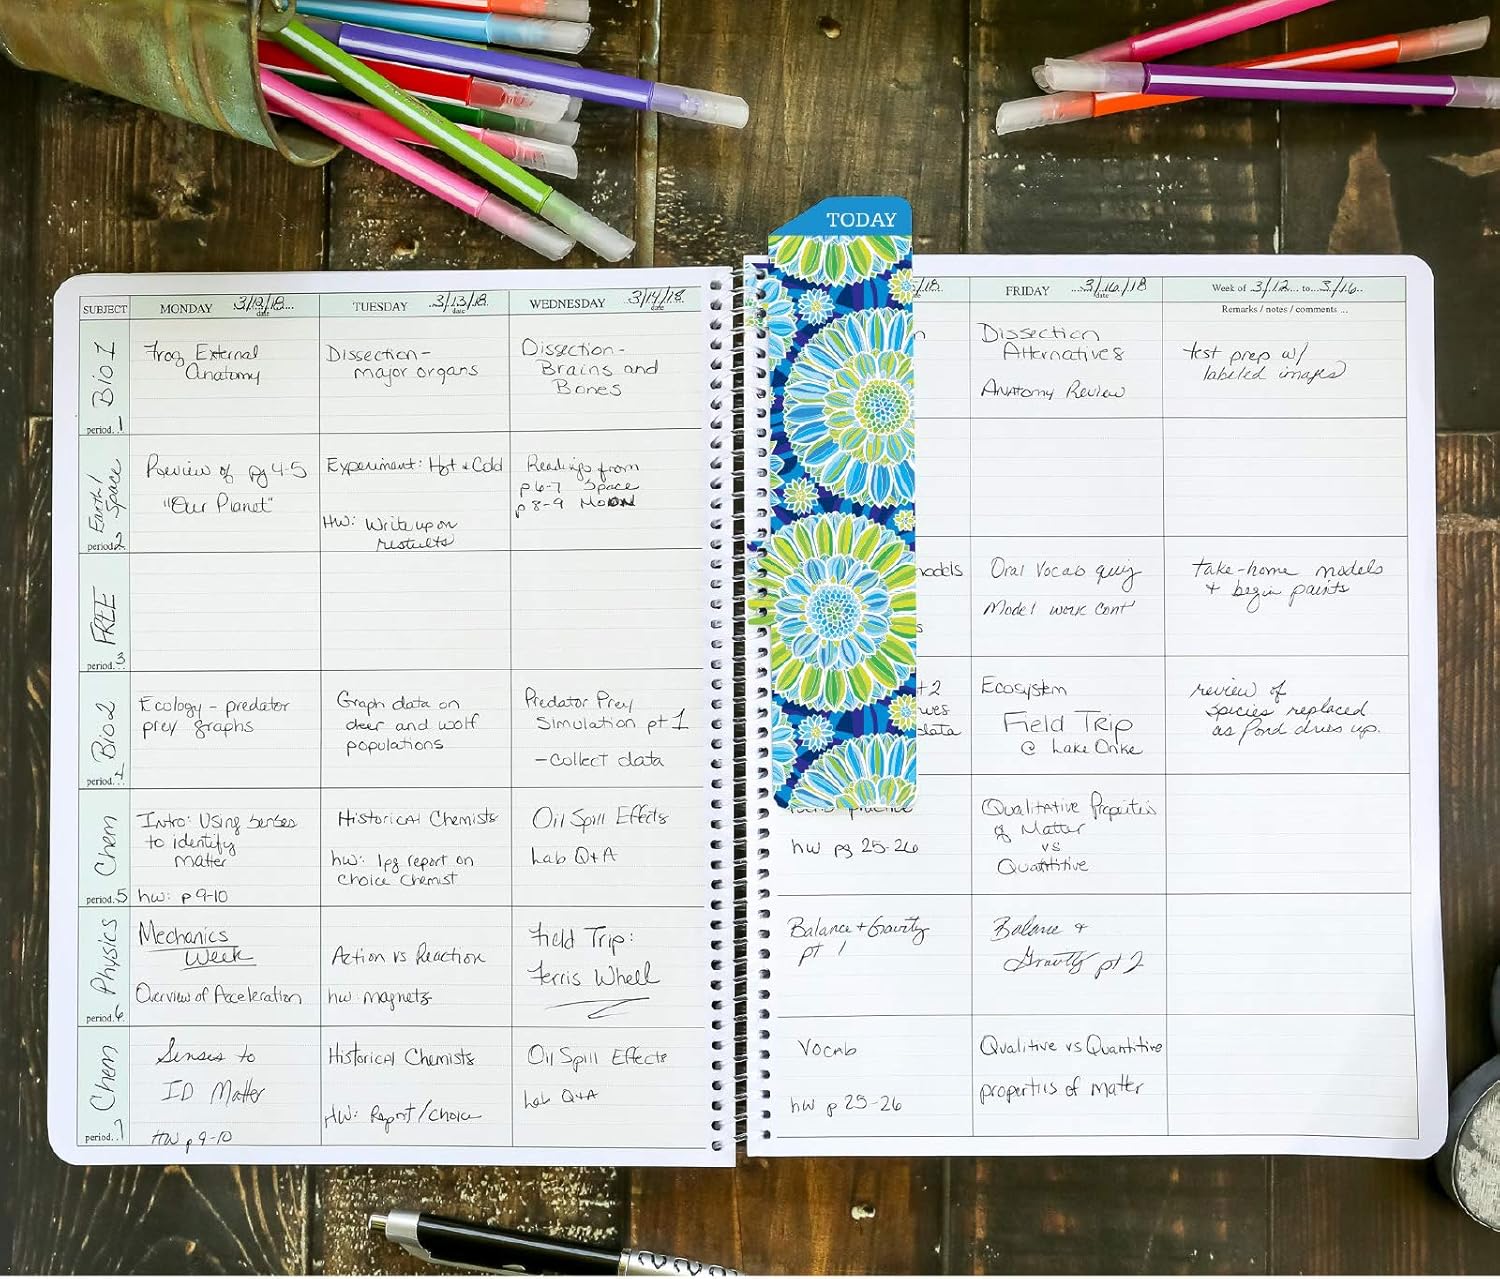 TODAY
SUBJECT
MONDAY 3/12/18
date
TUESDAY 3/13/18
date
WEDNESDAY 3/14/18
date
Bio 1
period 1
Frog External
Anatomy
Dissection-
major organs
Dissection-
Brains and
Bones
Earth/
Space
period 2
Preview of pg 4-5
"Our Planet"
Experiment: Hot & Cold
HW: Write up on
results
Readings from
p 6-7 Space
p 8-9 Moon
FREE
period 3
Bio 2
period 4
Ecology - predator
prey graphs
Graph data on
deer and wolf
populations
Predator Prey
Simulation pt 1
- collect data
Chem
period 5
Intro: Using senses
to identify
matter
hw: p 9-10
Historical Chemists
hw: 1pg report on
choice chemist
Oil Spill Effects
Lab Q+A
Physics
period 6
Mechanics
Week
Overview of Acceleration
Action vs Reaction
hw magnets
Field Trip:
Ferris Wheel
Chem
period 7
Senses to
ID Matter
HW p 9-10
Historical Chemists
HW: Report/choice
Oil Spill Effects
Lab Q+A
/18
date
FRIDAY 3/16/18
date
Week of 3/12 to 3/16
Remarks / notes / comments ...
n
Dissection
Alternatives
Anatomy Review
test prep w/
labeled images
models
s
Oral Vocab quiz
Model work cont'
take-home models
+ begin paints
t 2
ves
data
Ecosystem
Field Trip
@ Lake Orike
review of
species replaced
as Pond dries up.
practice
hw pg 25-26
Qualitative Properties
of Matter
vs
Quantitive
Balance + Gravity
pt 1
Balance &
Gravity pt 2
Vocab
hw p 25-26
Qualitive vs Quantitive
properties of matter